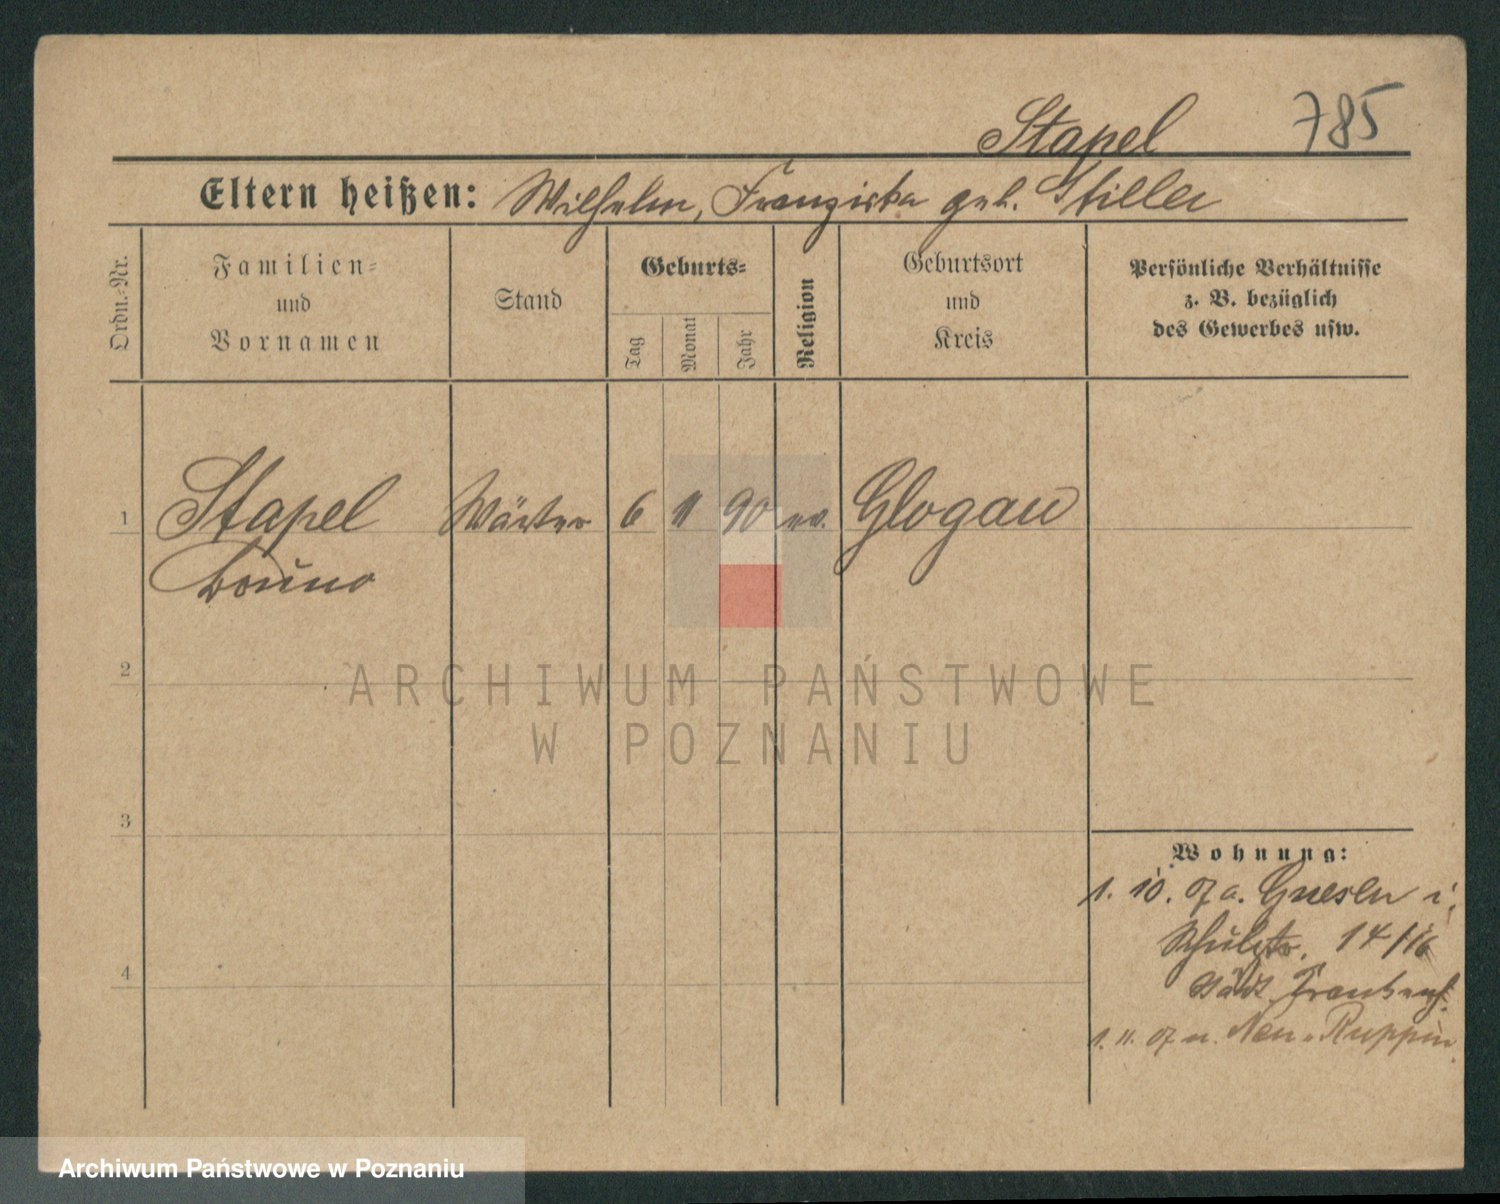 Stapel 785
Eltern heißen: Wilhelm, Franziska geb. Stiller
Ordn.-Nr.
Familien-
und
Vornamen
Stand
Geburts-
Tag
Monat
Jahr
Religion
Geburtsort
und
Kreis
Persönliche Verhältnisse
z. B. bezüglich
des Gewerbes usw.
1 Stapel Wärter 6 11 90 ev. Glogau
Bruno
2
ARCHIWUM PAŃSTWOWE
W POZNANIU
3
4
Wohnung:
1. 10. 07 a. Gnesen i.
Schulstr. 14/16
Städt. Krankenh.
1. 11. 07 n. Neu-Ruppin
Archiwum Państwowe w Poznaniu